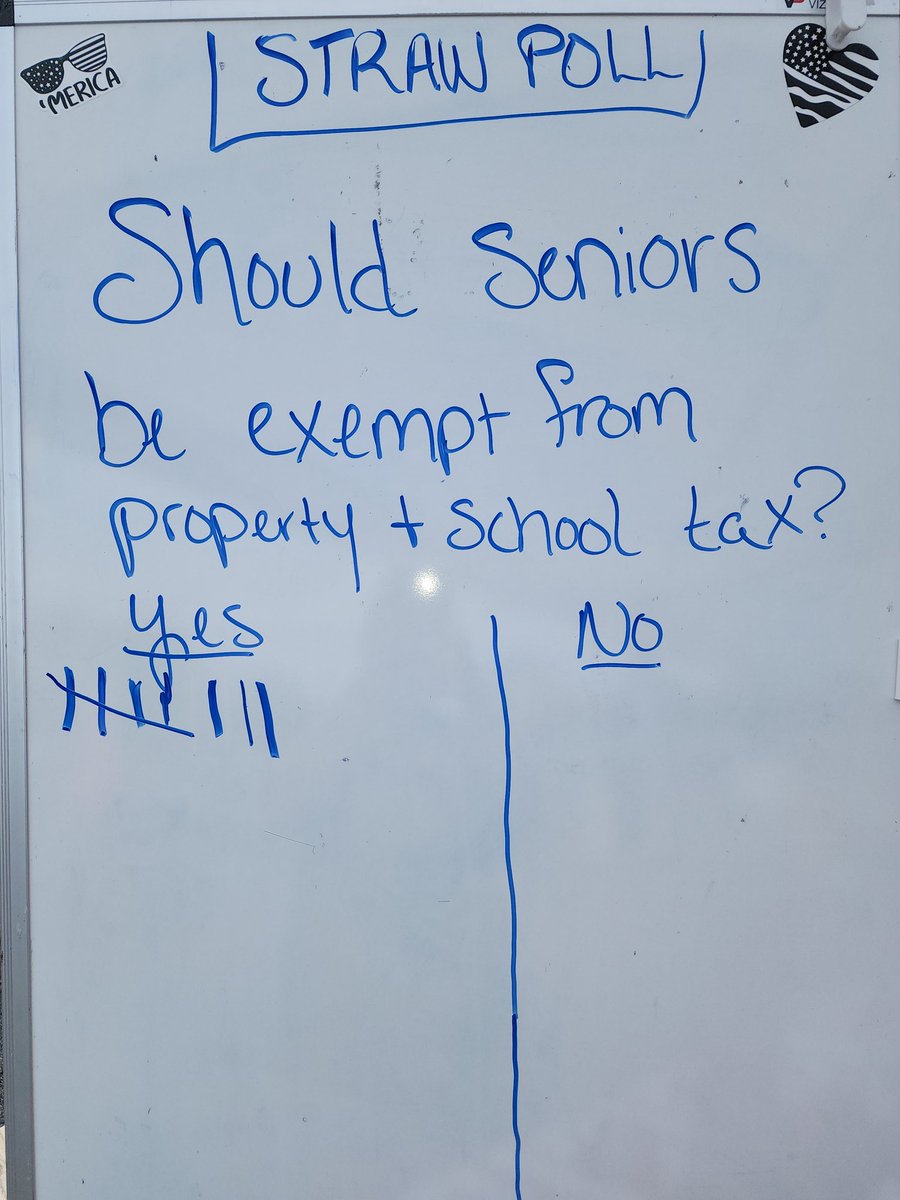 VIZ
'MERICA
STRAW POLL
Should Seniors
be exempt from
property + school tax?
Yes
No